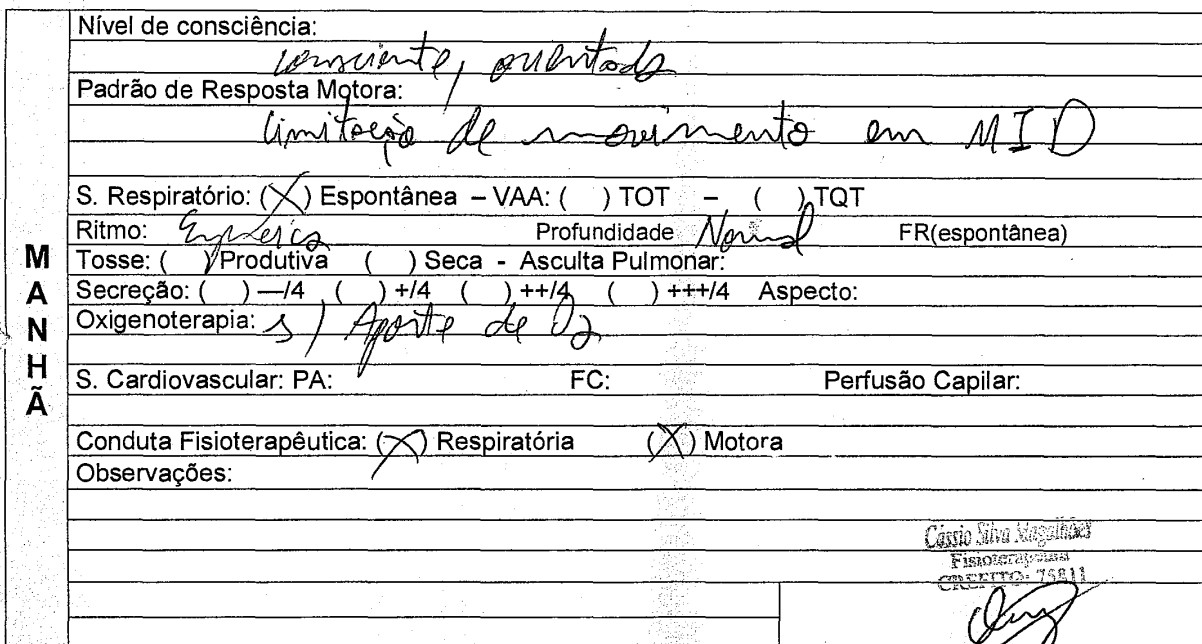 MANHÃ
Nível de consciência:
consciente, orientada
Padrão de Resposta Motora:
limitação de movimento em MID
S. Respiratório: (X) Espontânea – VAA: ( ) TOT – ( ) TQT
Ritmo: Eupneica Profundidade Normal FR(espontânea)
Tosse: ( ) Produtiva ( ) Seca - Asculta Pulmonar:
Secreção: ( ) —/4 ( ) +/4 ( ) ++/4 ( ) +++/4 Aspecto:
Oxigenoterapia: s/ Aporte de O2
S. Cardiovascular: PA: FC: Perfusão Capilar:
Conduta Fisioterapêutica: (X) Respiratória (X) Motora
Observações:
Cássio Silva Magalhães
Fisioterapeuta
CREFITO: 75811